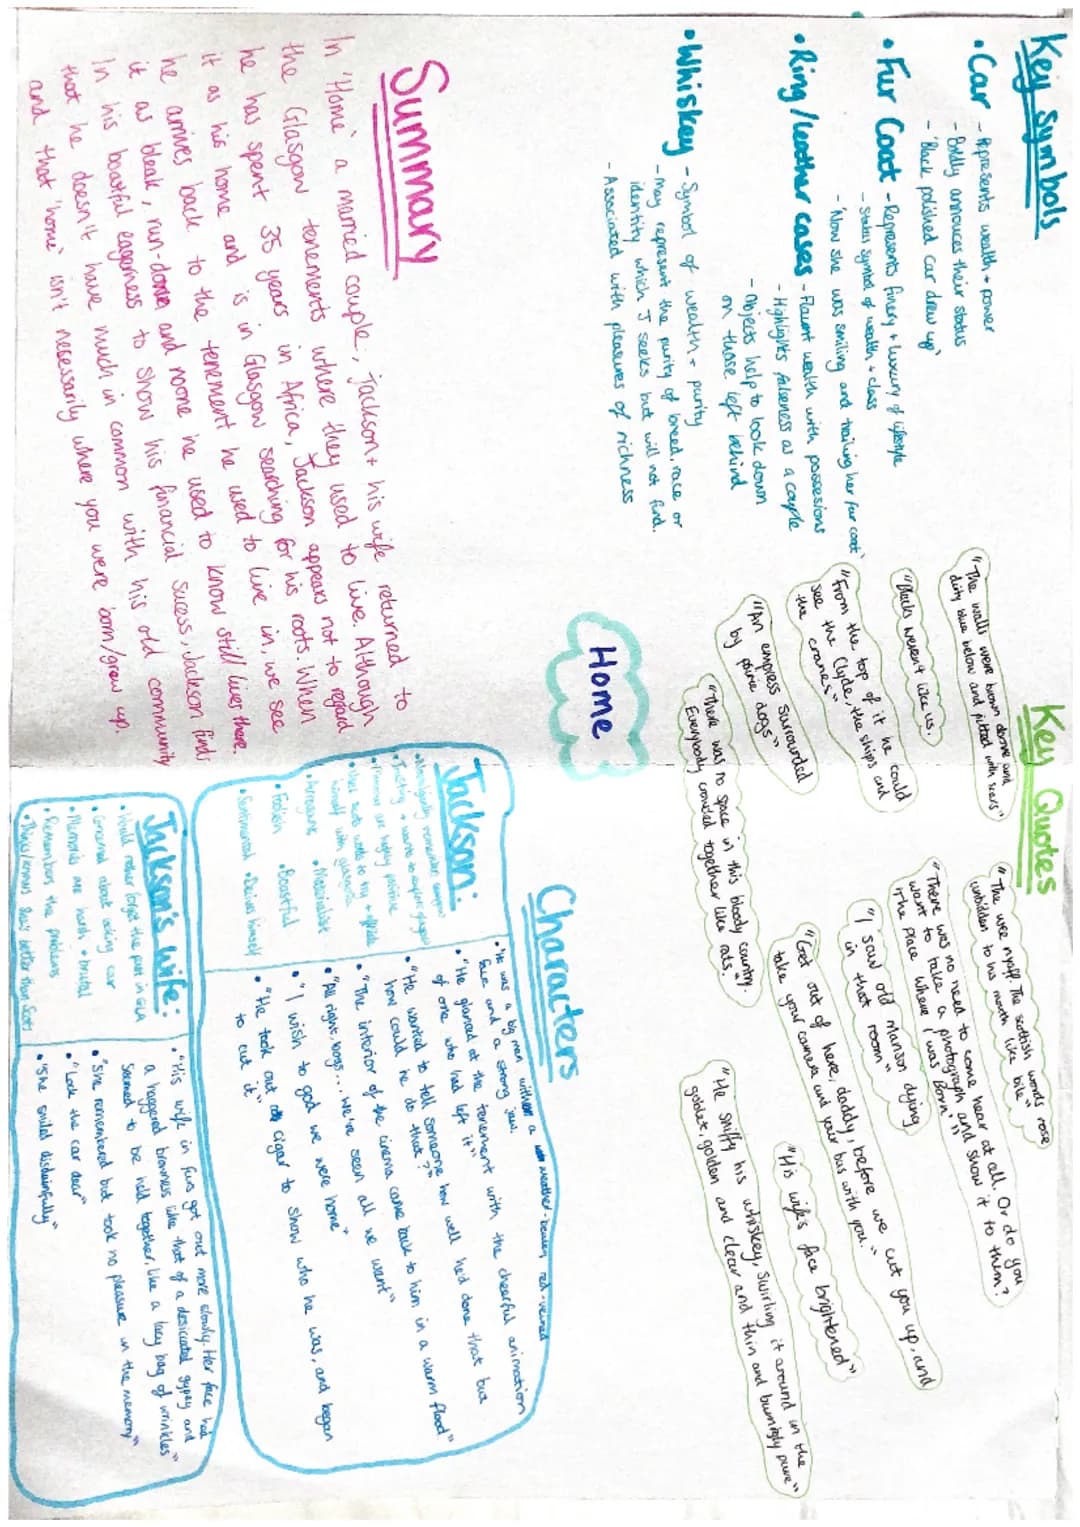 Key Symbols
• Car - Represents wealth + power
- Boldly annouces their status
- 'Black polished car drew up'
• Fur Coat - Represents finery + luxury of lifestyle
- Status symbol of wealth + class
- 'Now she was smiling and trailing her fur coat'
• Ring/leather cases - Flaunt wealth with possesions
- Highlights falseness as a couple
- Objects help to look down
on those left behind
• Whiskey - Symbol of wealth + purity
- May represent the purity of breed, race or
identity which J seeks but will not find.
- Associated with pleasures of richness
Summary
In 'Home' a married couple, Jackson + his wife returned to
the Glasgow tenements where they used to live. Although
he has spent 35 years in Africa, Jackson appears not to regard
it as his home and is in Glasgow searching for his roots. When
he arrives back to the tenement he used to live in, we see
it as bleak, run-down and noone he used to know still lives there.
In his boastful eagerness to show his financial sucess, Jackson finds
that he doesn't have much in common with his old community
and that 'home' isn't nesessarily where you were born/grew up.
Home
Key Quotes
"The walls were brown above and
dirty blue below and pitted with scars"
"Blacks weren't like us.
"From the top of it he could
see the Clyde, the ships and
the cranes"
"An empress surrounded
by prairie dogs"
"There was no space in this bloody country.
Everybody crowded together like rats,"
"The wee nyaff. The scottish words rose
unbidden to his mouth like bile"
"There was no need to come hear at all. Or do you
want to take a photograph and show it to them?
'The place where I was born'"
"I saw old Manson dying
in that room"
"Get out of here, daddy, before we cut you up, and
take your camera and your bus with you."
"His wife's face brightened"
"He sniffy his whiskey, swirling it around in the
goblet, golden and clear and thin and burningly pure"
Characters
Jackson:
• Nostalgically remember
• Trusting + wants to support glasgow
• Memories are highly positive
• himself with glasgow
• Arrogant • Materialist
• Foolish • Boastful
• Sentimental • Deludes himself
• "He was a big man with a weather-beaten red-veined
face and a strong jaw.
• "He glanced at the tenement with the cheerful animation
of one who had left it"
• "He wanted to tell someone how well he'd done that but
how could he do that?"
• "The interior of the cinema came back to him in a warm flood"
• "All right, boys... we've seen all we want"
• "I wish to god we were home"
• "He took out a cigar to show who he was, and began
to cut it"
Jackson's wife:
• Would rather forget the past in GLA
• Concerned about car
• Memories are harsh + brutal
• Remembers the problems
• Thinks/knows she's better than Scots
• "His wife in furs got out more slowly. Her face had
a haggered browness like that of a desicated gypsy and
seemed to be held together, like a lacy bag of wrinkles"
• "She remembered but took no pleasure in the memory"
• "Lock the car dear"
• "She smiled disdainfully"